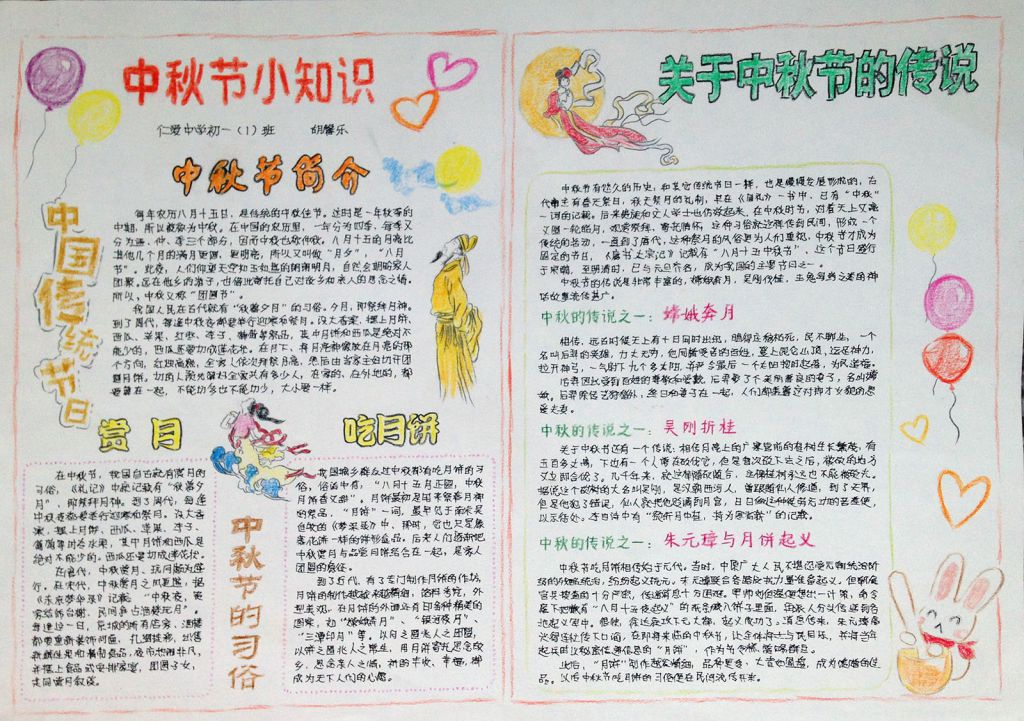 中秋节小知识
仁爱中学初一（1）班 胡馨乐
中秋节简介
中国传统节日
每年农历八月十五日，是传统的中秋佳节。这时是一年秋季的
中期，所以被称为中秋。在中国的农历里，一年分为四季，每季又
分为孟、仲、季三个部分，因而中秋也称仲秋。八月十五的月亮比
其他几个月的满月更圆，更明亮，所以又叫做“月夕”，“八月
节”。此夜，人们仰望天空如玉如盘的朗朗明月，自然会期盼家人
团聚。远在他乡的游子，也借此寄托自己对故乡和亲人的思念之情。
所以，中秋又称“团圆节”。
我国人民在古代就有“秋暮夕月”的习俗。夕月，即祭拜月神。
到了周代，每逢中秋夜都要举行迎寒和祭月。设大香案，摆上月饼、
西瓜、苹果、红枣、李子、葡萄等祭品，其中月饼和西瓜是绝对不
能少的，西瓜还要切成莲花状。在月下，将月亮神像放在月亮的那
个方向，红烛高燃，全家人依次拜祭月亮，然后由当家主妇切开团
圆月饼。切的人预先算好全家共有多少人，在家的，在外地的，都
要算在一起，不能切多也不能切少，大小要一样。
赏月
在中秋节，我国自古就有赏月的
习俗，《礼记》中就记载有“秋暮夕
月”，即祭拜月神。到了周代，每逢
中秋夜都要举行迎寒和祭月。设大香
案，摆上月饼、西瓜、苹果、李子、
葡萄等时令水果，其中月饼和西瓜是
绝对不能少的。西瓜还要切成莲花状。
在唐代，中秋赏月、玩月颇为盛
行。在宋代，中秋赏月之风更盛，据
《东京梦华录》记载：“中秋夜，贵
家结饰台榭，民间争占酒楼玩月”。
每逢这一日，京城的所有店家、酒楼
都要重新装饰门面，扎绸挂彩，出售
新鲜佳果和精制食品，夜市热闹非凡，
并摆上食品或安排家宴，团圆子女，
共同赏月叙谈。
中秋节的习俗
吃月饼
我国城乡群众过中秋都有吃月饼的习
俗，俗话中有：“八月十五月正圆，中秋
月饼香又甜”。月饼最初是用来祭奉月神
的祭品，“月饼”一词，最早见于南宋吴
自牧的《梦粱录》中，那时，它也只是像
菱花饼一样的饼形食品。后来人们逐渐把
中秋赏月与品尝月饼结合在一起，寓意家人
团圆的象征。
到了近代，有了专门制作月饼的作坊，
月饼的制作越来越精细，馅料考究，外
型美观，在月饼的外面还印有各种精美的
图案，如“嫦娥奔月”、“银河夜月”、
“三潭印月”等。以月之圆兆人之团圆，
以饼之圆兆人之常生，用月饼寄托思念故
乡，思念亲人之情，祈盼丰收、幸福，都
成为天下人们的心愿。
关于中秋节的传说
中秋节有悠久的历史，和其它传统节日一样，也是慢慢发展形成的，古
代帝王有春天祭日，秋天祭月的礼制，早在《周礼》一书中，已有“中秋”
一词的记载。后来贵族和文人学士也仿效起来，在中秋时节，对着天上又亮
又圆一轮皓月，观赏祭拜，寄托情怀，这种习俗就这样传到民间，形成一个
传统的活动，一直到了唐代，这种祭月的风俗更为人们重视，中秋节才成为
固定的节日，《唐书·太宗记》记载有“八月十五中秋节”，这个节日盛行
于宋朝，至明清时，已与元旦齐名，成为我国的主要节日之一。
中秋节的传说是非常丰富的，嫦娥奔月，吴刚伐桂，玉兔捣药之类的神
话故事流传甚广。
中秋的传说之一：嫦娥奔月
相传，远古时候天上有十日同时出现，晒得庄稼枯死，民不聊生，一个
名叫后羿的英雄，力大无穷，他同情受苦的百姓，登上昆仑山顶，运足神力，
拉开神弓，一气射下九个多太阳，并严令最后一个太阳按时起落，为民造福。
后羿因此受到百姓的尊敬和爱戴，后羿娶了个美丽善良的妻子，名叫嫦
娥。后羿除传艺狩猎外，终日和妻子在一起，人们都羡慕这对郎才女貌的恩
爱夫妻。
中秋的传说之一：吴刚折桂
关于中秋节还有一个传说：相传月亮上的广寒宫前的桂树生长繁茂，有
五百多丈高，下边有一个人常在砍伐它，但是每次砍下去之后，被砍的地方
又立即合拢了。几千年来，就这样随砍随合，这棵桂树永远也不能被砍光。
据说这个砍树的人名叫吴刚，是汉朝西河人，曾跟随仙人修道，到了天界，
但是他犯了错误，仙人就把他贬谪到月宫，日日做这种徒劳无功的苦差使，
以示惩处。李白诗中有“欲斫月中桂，持为寒者薪”的记载。
中秋的传说之一：朱元璋与月饼起义
中秋节吃月饼相传始于元代。当时，中原广大人民不堪忍受元朝统治阶
级的残酷统治，纷纷起义抗元。朱元璋联合各路反抗力量准备起义。但朝庭
官兵搜查的十分严密，传递消息十分困难。军师刘伯温便想出一计策，命令
属下把藏有“八月十五夜起义”的纸条藏入饼子里面，再派人分头传送到各
地起义军中。很快，徐达就攻下元大都，起义成功了。消息传来，朱元璋高
兴得连忙传下口谕，在即将来临的中秋节，让全体将士与民同乐，并将当年
起兵时以秘密传递信息的“月饼”，作为节令糕点赏赐群臣。
此后，“月饼”制作越发精细，品种更多，大者如圆盘，成为馈赠的佳
品。以后中秋节吃月饼的习俗便在民间流传开来。